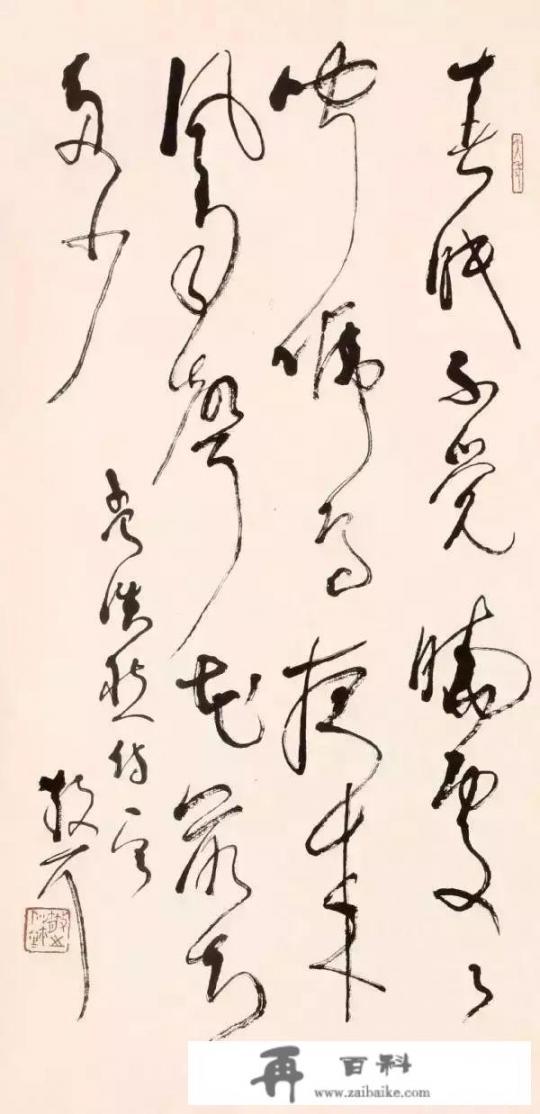 春眠不觉晓處々
闻啼鸟夜来
风雨聲花落知
多少
孟浩然诗一首
再 百科
www.zaibaike.com